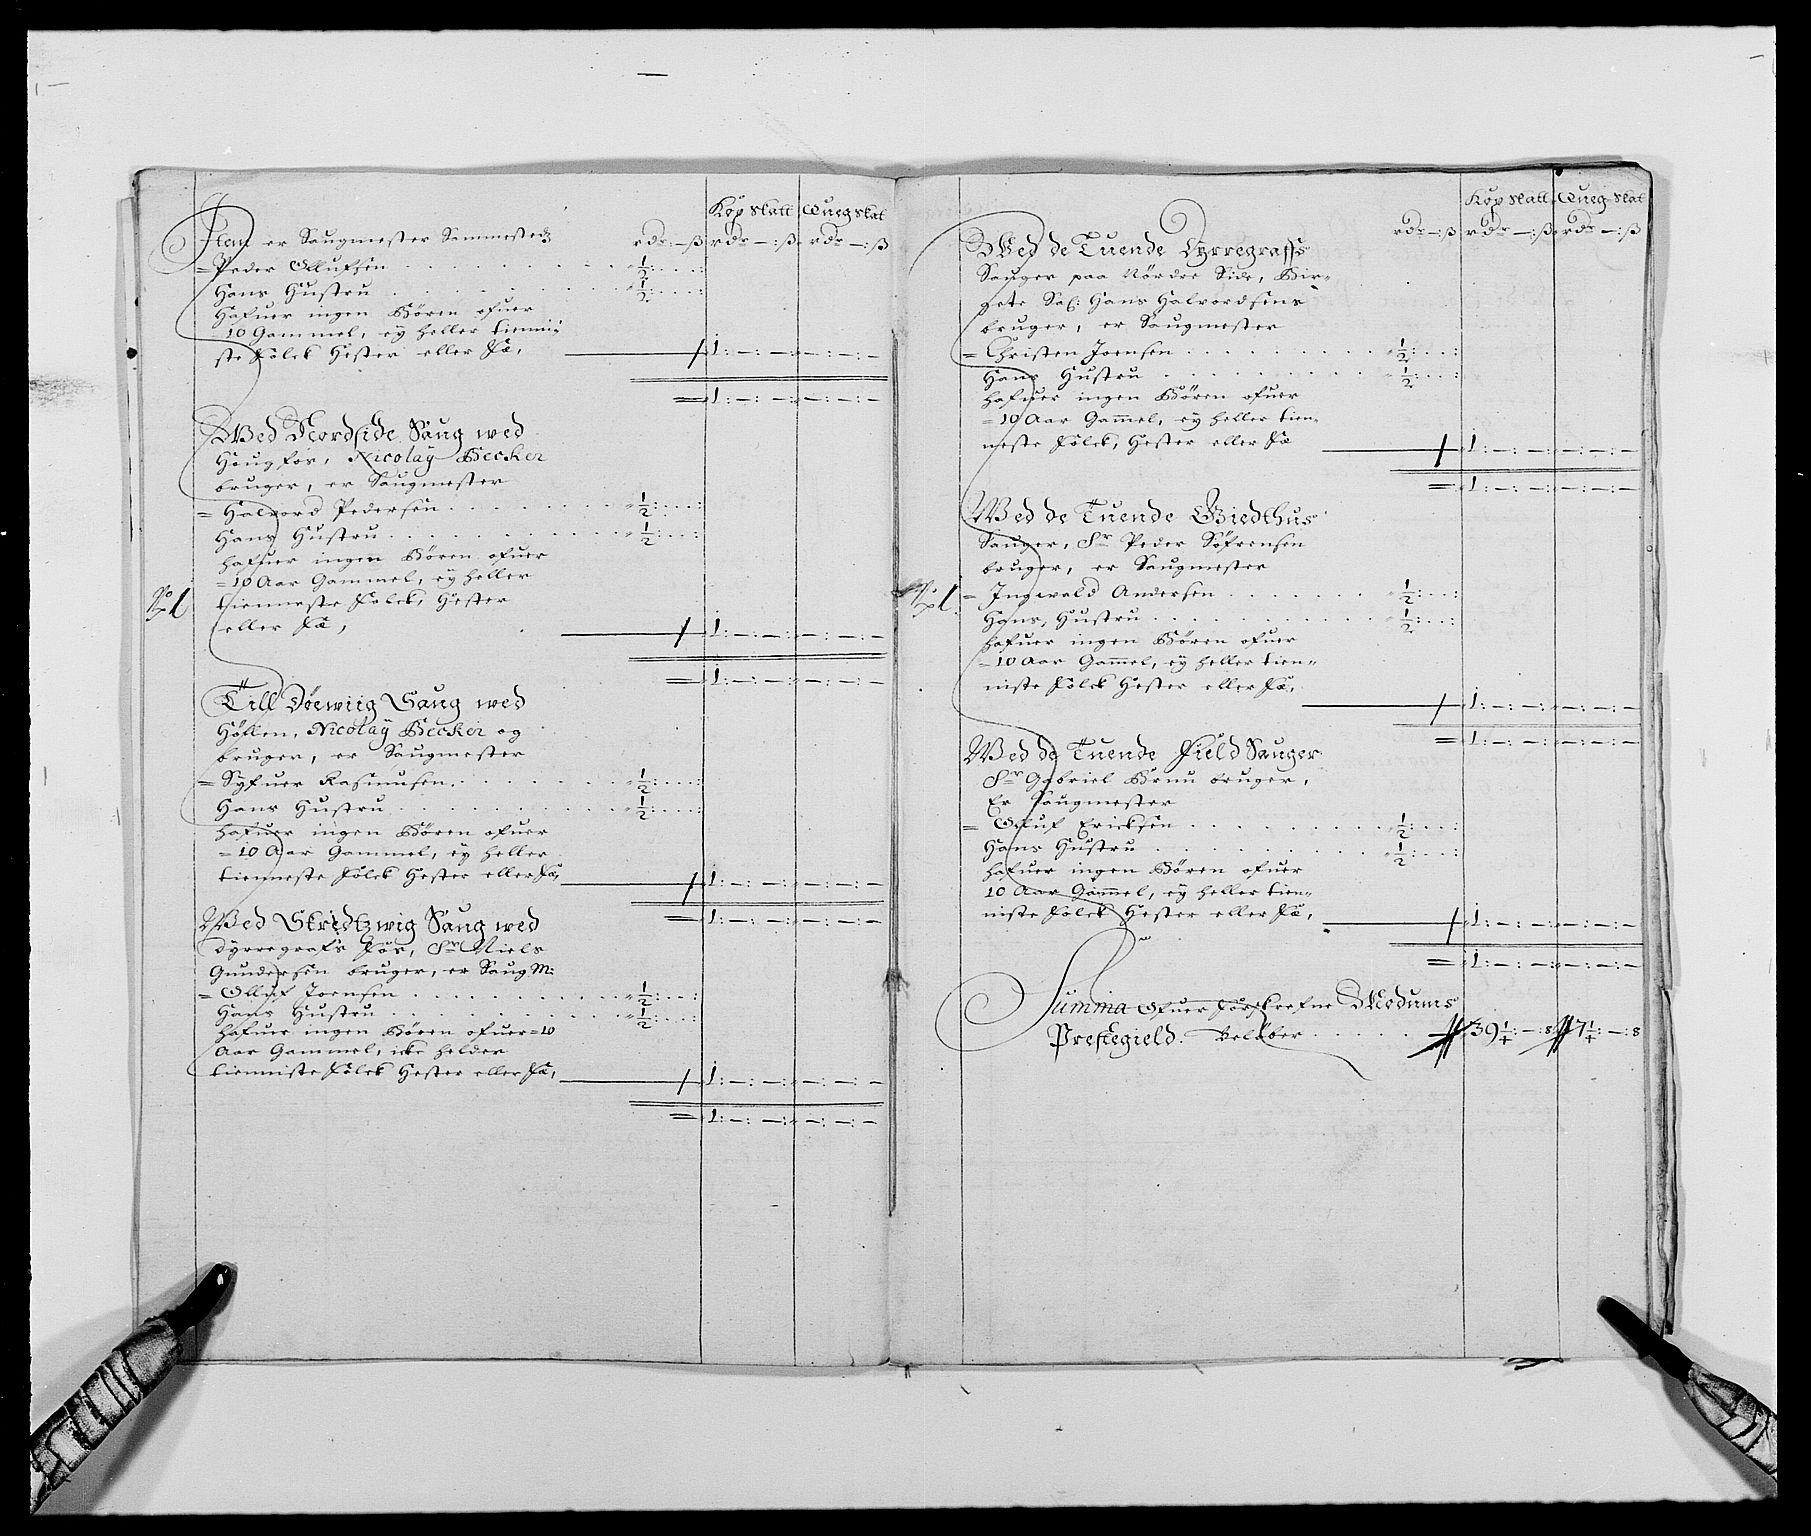 Kopskatt Quegskat
rdr — : ß rdr — : ß rdr — : ß
Item er Saugmester Sammested
= Peder Olluſsen . . . . . . . . ½ : . . . :
Hans Hustru . . . . . . . . ½ : . . . :
Hafuer ingen Bören ofuer
10 Gammel, eÿ heller tienni=
ste Folck Hester eller Fæ, 1 1 : — : — : — : — : —
= 1 : — : — : — : — : —
Wed Nordside Saug wed
Hougfos, Nicolaÿ Becker
bruger, er Saugmester
= Halword Pedersen . . . . . . . ½ : . . . :
Hans Hustru . . . . . . . . ½ : . . . :
hafuer ingen Bören ofuer
= 10 Aar Gammel, eÿ heller
No 1 tienneste Folck, Hester
eller Fæ, 1 1 : — : — : — : — : —
= 1 : — : — : — : — : —
Till Döewiig Saug wed
Höllen, Nicolaÿ Becker og
bruger, er Saugmester
= Syfuer Rasmusen . . . . . . ½ : . . . :
Hans Hustru . . . . . . . . ½ : . . . :
hafuer ingen Bören ofuer
= 10 Aar Gammel, eÿ heller
tienneste Folck Hester eller Fæ, 1 1 : — : — : — : — : —
= 1 : — : — : — : — : —
Wed Skredtzwig Saug wed
Dÿrregrafs Fos, Sr Niels
Gundersen bruger, er Saug M:
= Olluf Joensen . . . . . . . ½ : . . . :
Hans Hustru . . . . . . . . ½ : . . . :
hafuer ingen Bören ofuer = 10
Aar Gammel, icke helder
tienniste Folck Hester eller Fæ, 1 1 : — : — : — : — : —
= 1 : — : — : — : — : —
Kopskatt Queg skat
rdr — : ß rdr — : ß rdr — : ß
Wed de Tuende Dyrregraffs
Sauger paa Nordre Side, Bir=
gete Sal: Hans Halvordsens
bruger, er Saugmester
= Christen Joensen . . . . . . . ½ : . . . :
Hans Hustru . . . . . . . . ½ : . . . :
hafuer ingen Bören ofuer
= 10 Aar Gammel, eÿ heller tien=
neste Folck, Hester eller Fæ 1 1 : — : — : — : — : —
= 1 : — : — : — : — : —
Wed de Tuende Giedthus
Sauger, Sr Peder Söfrensen
bruger, er Saugmester
No 1. = Ingwald Andersen . . . . . . ½ : . . . :
Hans, Hustru . . . . . . . . ½ : . . . :
hafuer ingen Bören ofuer
= 10 Aar Gammel, eÿ heller tien=
niste Folck Hester eller Fæ, 1 1 : — : — : — : — : —
= 1 : — : — : — : — : —
Wed de Tuende Field Sauger
Sr Gabriel bruger,
Er Saugmester
= Olluf Ericksen . . . . . . . ½ : . . . :
Hans Hustru . . . . . . . . ½ : . . . :
hafuer ingen Bören ofuer
10 Aar Gammel, eÿ heller tien=
niste Folck Hester eller Fæ, 1 1 : — : — : — : — : —
= 1 : — : — : — : — : —
Summa Ofuer Forskrefne Modums
Prestegield. belöber . . . . . 39¼ : — : ß 7¼ : — : ß